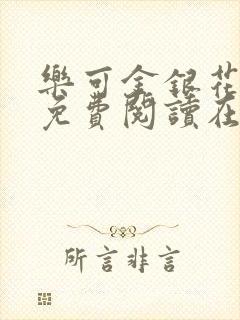 樂可金銀花
免費閱讀在
所言非言